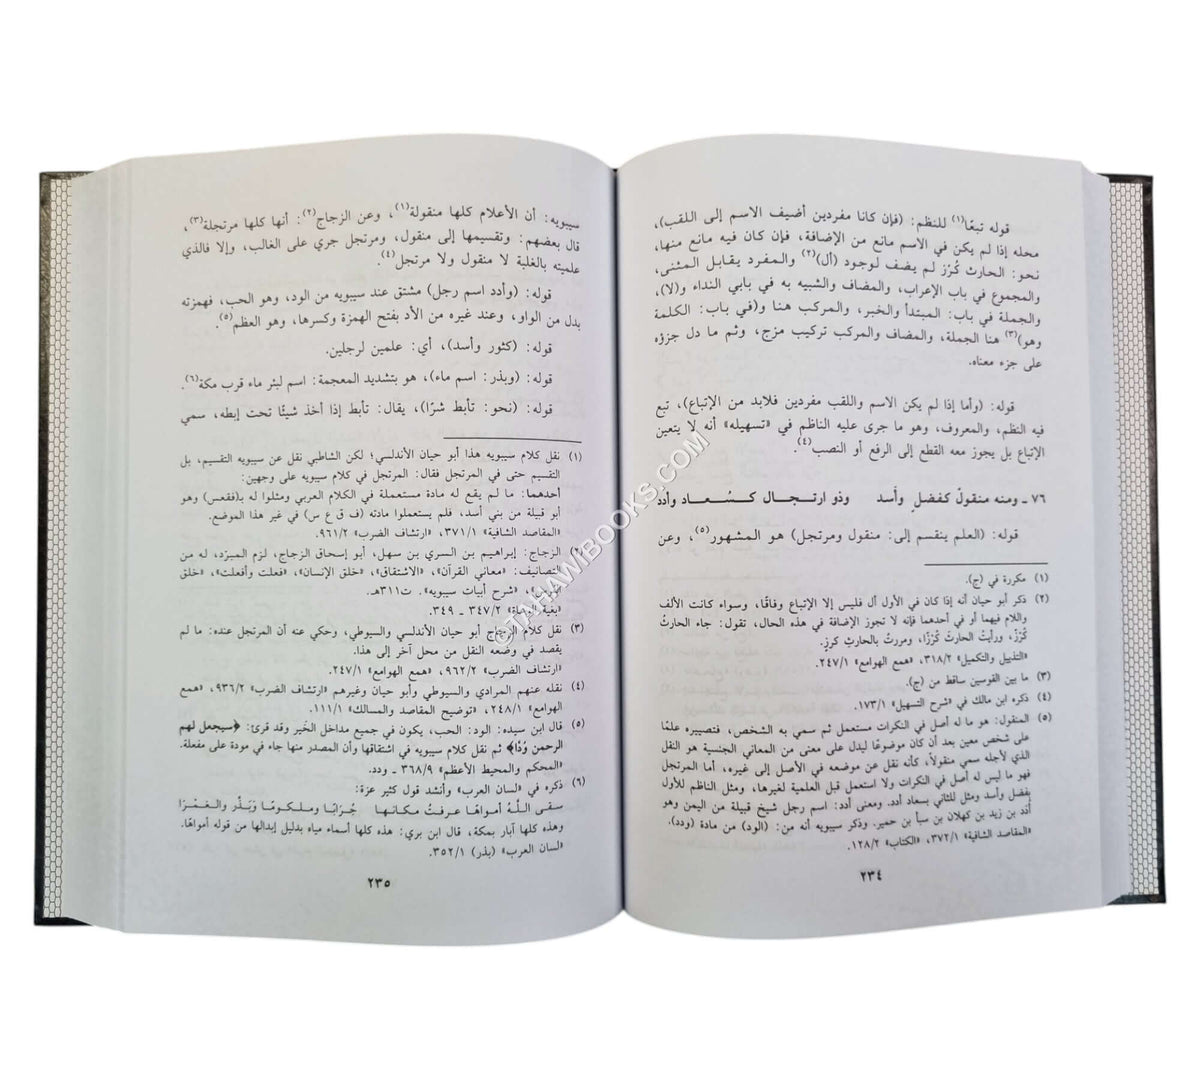 قوله تبعًا(١) للنظم: (فإن كانا مفردين أضيف الاسم إلى اللقب)،
محله إذا لم يكن في الاسم مانع من الإضافة، فإن كان فيه مانع منها،
نحو: الحارث كُرْز لم يضف لوجود (أل)(٢) والمفرد يقابل المثنى،
والمجموع في باب الإعراب، والمضاف والشبيه به في بابي النداء و(لا)،
والجملة في باب: المبتدأ والخبر، والمركب هنا و(في باب: الكلمة
وهو)(٣) هنا الجملة، والمضاف والمركب تركيب مزج، وثم ما دل جزؤه
على جزء معناه.
قوله: (وأما إذا لم يكن الاسم واللقب مفردين فلابد من الإتباع)، تبع
فيه النظم، والمعروف، وهو ما جرى عليه الناظم في «تسهيله» أنه لا يتعين
الإتباع بل يجوز معه القطع إلى الرفع أو النصب(٤).
٧٦ ـ ومنه منقولٌ كفضلٍ وأسد وذو ارتجال كسُعاد وأدد
قوله: (العلم ينقسم إلى: منقول ومرتجل) هو المشهور(٥)، وعن
(١) مكررة في (ج).
(٢) ذكر أبو حيان أنه إذا كان في الأول أل فليس إلا الإتباع وفاقًا، وسواء كانت الألف
واللام فيهما أو في أحدهما فإنه لا تجوز الإضافة في هذه الحال، تقول: جاء الحارثُ
كُرْزٌ، ورأيتُ الحارثَ كُرْزًا، ومررتُ بالحارثِ كرزٍ.
«التذييل والتكميل» ٣١٨/٢، «همع الهوامع» ٢٤٧/١.
(٣) ما بين القوسين ساقط من (ج).
(٤) ذكره ابن مالك في «شرح التسهيل» ١٧٣/١.
(٥) المنقول: هو ما له أصل في النكرات مستعمل ثم سمي به الشخص، فتصييره علمًا
على شخص معين بعد أن كان موضوعًا ليدل على معنى من المعاني الجنسية هو النقل
الذي لأجله سمي منقولاً، كأنه نقل عن موضعه في الأصل إلى غيره، أما المرتجل
فهو ما ليس له أصل في النكرات ولا استعمل قبل العلمية لغيرها، ومثل الناظم للأول
بفضل وأسد ومثل للثاني بسعاد أدد. ومعنى أدد: اسم رجل شيخ قبيلة من اليمن وهو
أُدَد بن زيد بن كهلان بن سبأ بن حمير. وذكر سيبويه أنه من: (الود) من مادة (ودد).
«المقاصد الشافية» ٣٧٢/١، «الكتاب» ١٢٨/٢.
٢٣٤
سيبويه: أن الأعلام كلها منقولة(١)، وعن الزجاج(٢): أنها كلها مرتجلة(٣)،
قال بعضهم: وتقسيمها إلى منقول، ومرتجل جري على الغالب، وإلا فالذي
علميته بالغلبة لا منقول ولا مرتجل(٤).
قوله: (وأدد اسم رجل) مشتق عند سيبويه من الود، وهو الحب، فهمزته
بدل من الواو، وعند غيره من الأد بفتح الهمزة وكسرها، وهو العظم(٥).
قوله: (كثور وأسد)، أي: علمين لرجلين.
قوله: (وبذر: اسم ماء)، هو بتشديد المعجمة: اسم لبئر ماء قرب مكة(٦).
قوله: (نحو: تأبط شرًا)، يقال: تأبط إذا أخذ شيئًا تحت إبطه، سمي
(١) نقل كلام سيبويه هذا أبو حيان الأندلسي؛ لكن الشاطبي نقل عن سيبويه التقسيم، بل
التقسيم حتى في المرتجل فقال: المرتجل في كلام سيبويه على وجهين:
أحدهما: ما لم يقع له مادة مستعملة في الكلام العربي ومثلوا له بـ(فقعس) وهو
أبو قبيلة من بني أسد، فلم يستعملوا مادته (ف ق ع س) في غير هذا الموضع.
«المقاصد الشافية» ٣٧١/١، «ارتشاف الضرب» ٩٦١/٢.
(٢) الزجاج: إبراهيم بن السري بن سهل، أبو إسحاق الزجاج، لزم المبرّد، له من
التصانيف: «معاني القرآن»، «الاشتقاق»، «خلق الإنسان»، «فعلت وأفعلت»، «خلق
«شرح أبيات سيبويه». ت٣١١هـ.
«بغية ٣٤٧/٢ ـ ٣٤٩.
(٣) نقل كلام الزجاج أبو حيان الأندلسي والسيوطي، وحكي عنه أن المرتجل عنده: ما لم
يقصد في وضعه النقل من محل آخر إلى هذا.
«ارتشاف الضرب» ٩٦٢/٢، «همع الهوامع» ٢٤٧/١.
(٤) نقله عنهم المرادي والسيوطي وأبو حيان وغيرهم «ارتشاف الضرب» ٩٣٦/٢، «همع
الهوامع» ٢٤٨/١، «توضيح المقاصد والمسالك» ١١١/١.
(٥) قال ابن سيده: الود: الحب، يكون في جميع مداخل الخير وقد قرئ: ﴿سيجعل لهم
الرحمن وُدًّا﴾ ثم نقل كلام سيبويه في اشتقاقها وأن المصدر منها جاء في مودة على مفعلة.
«المحكم والمحيط الأعظم» ٣٦٨/٩ ـ ودد.
(٦) ذكره في «لسان العرب» وأنشد قول كثير عزة:
سقى اللهُ أمواهًا عرفتُ مكانها جُرَابًا وملكومًا وبَذَّر والغَمْرَا
وهذه كلها آبار بمكة، قال ابن بري: هذه كلها أسماء مياه بدليل إبدالها من قوله أمواهًا.
«لسان العرب» (بذر) ٣٥٢/١.
٢٣٥
©TAHAWIBOOKS.COM